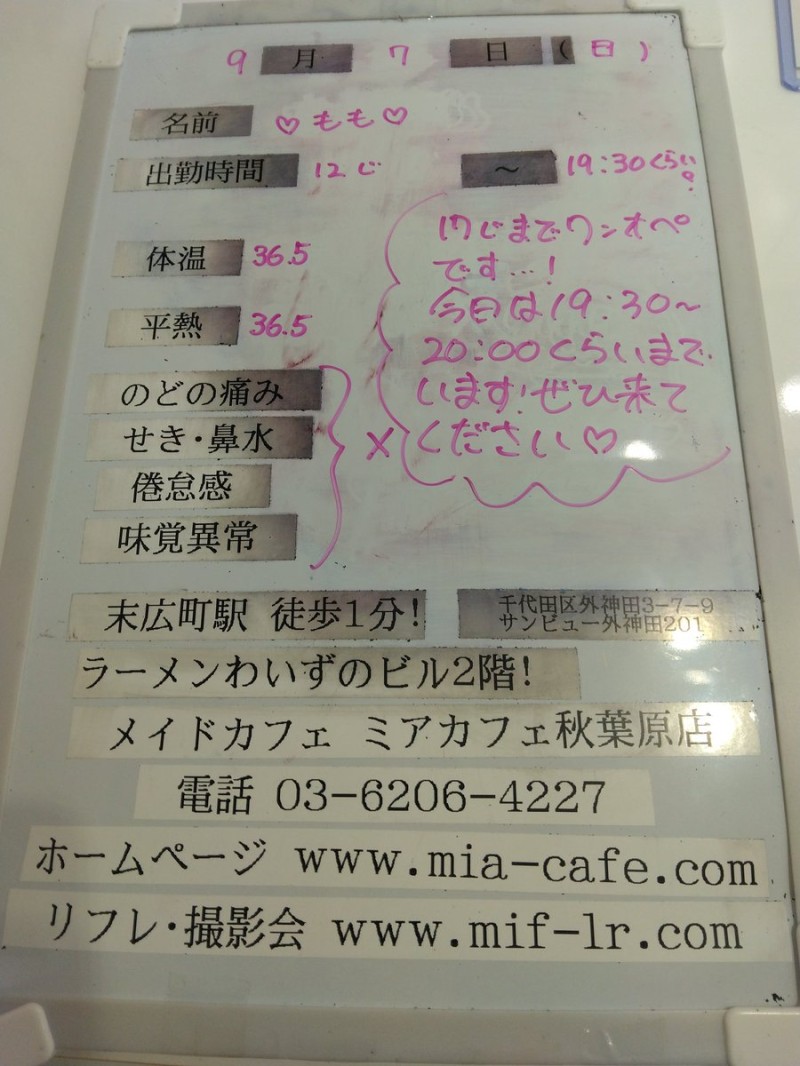 9 月 7 日 (日)
名前 ♡もも♡
出勤時間 12じ ～ 19:30くらい
体温 36.5
平熱 36.5
のどの痛み
せき・鼻水
倦怠感
味覚異常
×
17じまでワンオペ
です…!
今日は19:30～
20:00くらいまで
います!ぜひ来て
ください♡
末広町駅 徒歩1分!
千代田区外神田3-7-9
サンビュー外神田201
ラーメンわいずのビル2階!
メイドカフェ ミアカフェ秋葉原店
電話 03-6206-4227
ホームページ www.mia-cafe.com
リフレ・撮影会 www.mif-lr.com